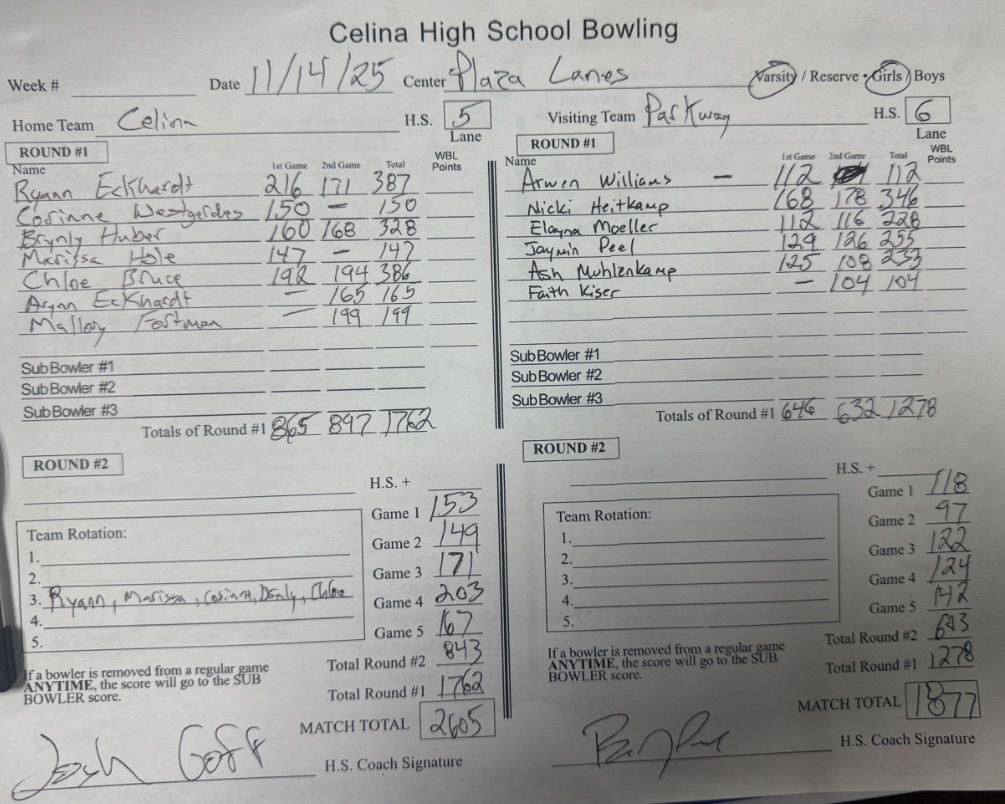 Celina High School Bowling
Week # Date 11/14/25 Center Plaza Lanes Varsity / Reserve • Girls / Boys
Home Team Celina H.S. 5 Lane
ROUND #1
Name 1st Game 2nd Game Total WBL Points
Ryann Eckhardt 216 171 387
Corinne Westgerdes 150 – 150
Brynly Huber 160 168 328
Marissa Hole 147 – 147
Chloe Bruce 192 194 386
Arynn Eckhardt – 165 165
Mallory Fortman – 199 199
Sub Bowler #1
Sub Bowler #2
Sub Bowler #3
Totals of Round #1 865 897 1762
Visiting Team Parkway H.S. 6 Lane
ROUND #1
Name 1st Game 2nd Game Total WBL Points
Arwen Williams – 112 112
Nicki Heitkamp 168 178 346
Elayna Moeller 112 116 228
Jaymin Peel 129 126 255
Ash Muhlenkamp 125 108 233
Faith Kiser – 104 104
Sub Bowler #1
Sub Bowler #2
Sub Bowler #3
Totals of Round #1 646 632 1278
ROUND #2
H.S. +
Game 1 153
Game 2 149
Game 3 171
Game 4 203
Game 5 167
Team Rotation:
1.
2.
3. Ryann, Marissa, Corinne, Chloe
4.
5.
Total Round #2 843
Total Round #1 1762
MATCH TOTAL 2605
If a bowler is removed from a regular game
ANYTIME, the score will go to the SUB
BOWLER score.
Josh Goff
H.S. Coach Signature
ROUND #2
H.S. +
Game 1 118
Game 2 97
Game 3 122
Game 4 124
Game 5 142
Team Rotation:
1.
2.
3.
4.
5.
Total Round #2 643
Total Round #1 1278
MATCH TOTAL 1877
If a bowler is removed from a regular game
ANYTIME, the score will go to the SUB
BOWLER score.
H.S. Coach Signature